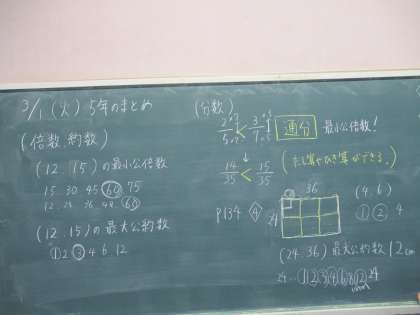 3/1 (火) 5年のまとめ
(倍数、約数)
(12 15)の最小公倍数
15 30 45 60 75
12 24 36 48 60
(12.15)の最大公約数
① 2 ③ 4 6 12
(分数)
2/5 < 3/7 通分 最小公倍数!
↓
14/35 < 15/35 (たし算やひき算ができる。)
P134 ④
36
24
(4.6)
① ② 4
(24.36) 最大公約数 12cm
24… ① ② ③ ④ ⑥ 8 ⑫ 24